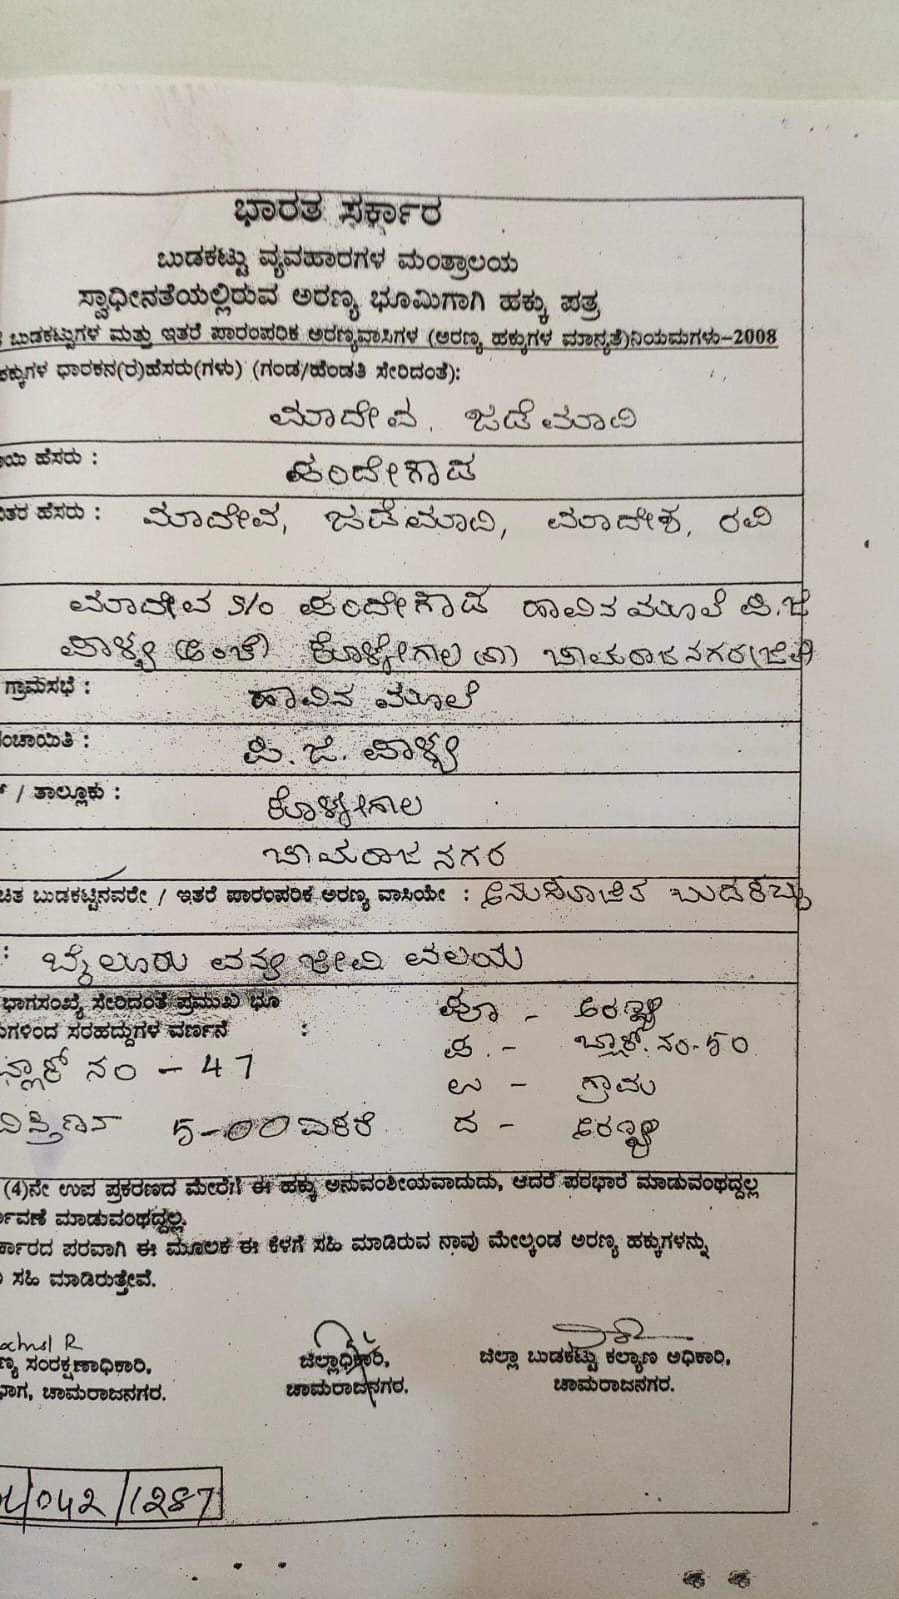 ಭಾರತ ಸರ್ಕಾರ
ಬುಡಕಟ್ಟು ವ್ಯವಹಾರಗಳ ಮಂತ್ರಾಲಯ
ಸ್ವಾಧೀನತೆಯಲ್ಲಿರುವ ಅರಣ್ಯ ಭೂಮಿಗಾಗಿ ಹಕ್ಕು ಪತ್ರ
ಬುಡಕಟ್ಟುಗಳ ಮತ್ತು ಇತರೆ ಪಾರಂಪರಿಕ ಅರಣ್ಯವಾಸಿಗಳ (ಅರಣ್ಯ ಹಕ್ಕುಗಳ ಮಾನ್ಯತೆ)ನಿಯಮಗಳು-2008
ಧಾರಕನ(ರ)ಹೆಸರು(ಗಳು) (ಗಂಡ/ಹೆಂಡತಿ ಸೇರಿದಂತೆ):
ಮಾದೇವ. ಜಡೆಮಾದಿ
ಹೆಸರು :
ಹೆಸರು : ಮಾದೇವ, ಜಡೆಮಾದಿ, ಮಾದೇಶ, ರವಿ
ಮಾದೇವ S/o ಹಾವಿನ ಮೂಲೆ ಪಿ.ಜಿ
ಪಾಳ್ಯ (ಅಂಚೆ) ಕೊಳ್ಳೇಗಾಲ (ತಾ) ಚಾಮರಾಜನಗರ(ಜಿಲ್ಲೆ)
ಗ್ರಾಮಸಭೆ : ಹಾವಿನ ಮೂಲೆ
ಪಿ. ಜಿ. ಪಾಳ್ಯ
/ ತಾಲ್ಲೂಕು : ಕೊಳ್ಳೇಗಾಲ
ಚಾಮರಾಜ ನಗರ
ಬುಡಕಟ್ಟಿನವರೇ / ಇತರೆ ಪಾರಂಪರಿಕ ಅರಣ್ಯ ವಾಸಿಯೇ : ಅನುಸೂಚಿತ ಬುಡಕಟ್ಟು
: ಬೈಲೂರು ವನ್ಯ ಜೀವಿ ವಲಯ
ಸೇರಿದಂತೆ ಪ್ರಮುಖ ಭೂ
ಸರಹದ್ದುಗಳ ವರ್ಣನೆ :
ಬ್ಲಾಕ್ ನಂ - 47
5-00 ಎಕರೆ
ಪೂ - ಅರಣ್ಯ
ಪ. - ಬ್ಲಾಕ್. ನಂ-50
ಉ - ಗ್ರಾಮ
ದ - ಅರಣ್ಯ
(4)ನೇ ಉಪ ಪ್ರಕರಣದ ಮೇರೆಗೆ ಈ ಹಕ್ಕು ಅನುವಂಶೀಯವಾದುದು, ಆದರೆ ಪರಭಾರೆ ಮಾಡುವಂಥದ್ದಲ್ಲ
ಮಾಡುವಂಥದ್ದಲ್ಲ.
ಪರವಾಗಿ ಈ ಮೂಲಕ ಈ ಕೆಳಗೆ ಸಹಿ ಮಾಡಿರುವ ನಾವು ಮೇಲ್ಕಂಡ ಅರಣ್ಯ ಹಕ್ಕುಗಳನ್ನು
ಸಹಿ ಮಾಡಿರುತ್ತೇವೆ.
ಸಂರಕ್ಷಣಾಧಿಕಾರಿ,
ಚಾಮರಾಜನಗರ.
ಜಿಲ್ಲಾಧಿಕಾರಿ,
ಚಾಮರಾಜನಗರ.
ಜಿಲ್ಲಾ ಬುಡಕಟ್ಟು ಕಲ್ಯಾಣ ಅಧಿಕಾರಿ,
ಚಾಮರಾಜನಗರ.
/042/1287